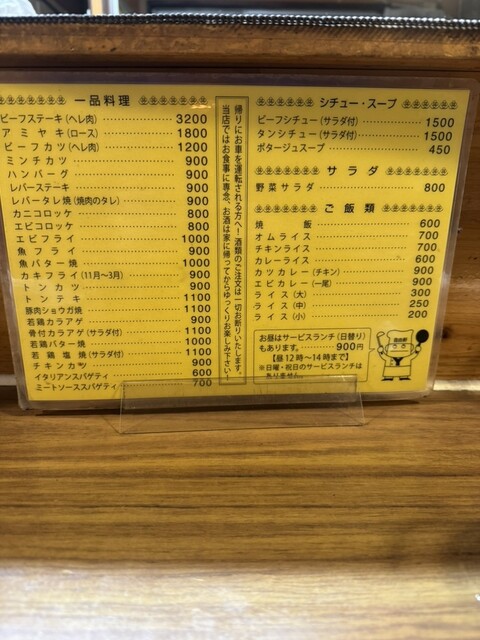 一品料理
ビーフステーキ(ヘレ肉) 3200
アミヤキ(ロース) 1800
ビーフカツ(ヘレ肉) 1200
ミンチカツ 900
ハンバーグ 900
レバーステーキ 900
レバータレ焼(焼肉のタレ) 900
カニコロッケ 800
エビコロッケ 800
エビフライ 1000
魚フライ 900
魚バター焼 1000
カキフライ(11月〜3月) 900
トンカツ 900
トンテキ 1100
豚肉ショウガ焼 1100
若鶏カラアゲ 900
骨付カラアゲ(サラダ付) 1100
若鶏バター焼 1100
若鶏塩焼(サラダ付) 1100
チキンカツ 900
イタリアンスパゲティ 600
ミートソーススパゲティ 700
帰りにお車を運転される方へ!酒類のご注文は一切お断りいたします。
当店ではお食事に専念、お酒は家に帰ってからゆっくりお楽しみ下さい!
シチュー・スープ
ビーフシチュー(サラダ付) 1500
タンシチュー(サラダ付) 1500
ポタージュスープ 450
サラダ
野菜サラダ 800
ご飯類
焼飯 600
オムライス 700
チキンライス 700
カレーライス 600
カツカレー(チキン) 900
エビカレー(一尾) 900
ライス(大) 300
ライス(中) 250
ライス(小) 200
お昼はサービスランチ(日替り)
もあります。 900円
【昼12時〜14時まで】
※日曜・祝日のサービスランチは
ありません。